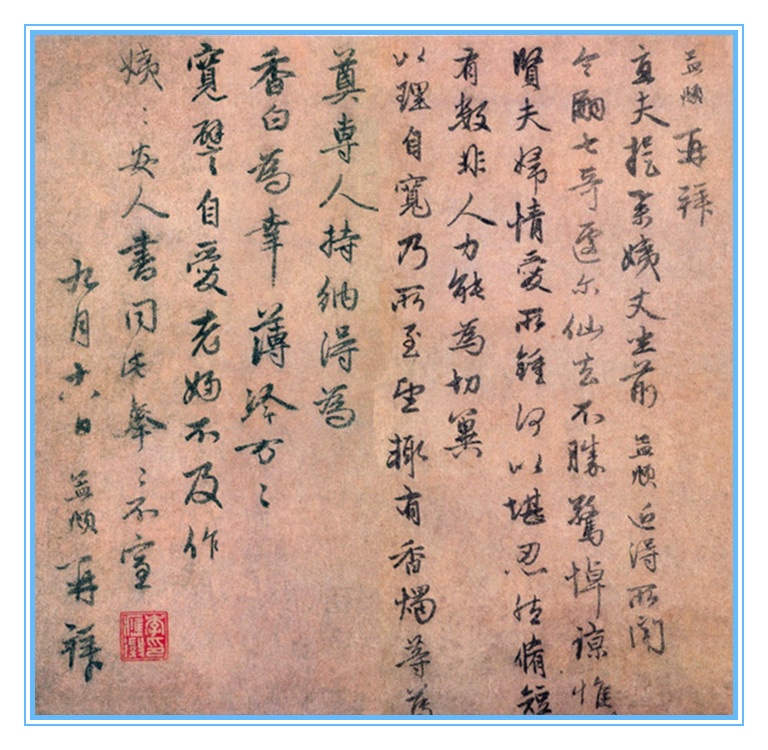 孟頫再拜
直夫提舉姨丈坐前孟頫近得所聞
令嗣七哥遽尔仙去不勝驚悼諒惟
賢夫婦情愛所鍾何以堪忍然脩短
有數非人力能為切冀
以理自寬乃所至望輒有香燭等為
奠專人持納得為
香白為幸薄万〻
寬譬自愛老婦不及作
姨〻安人書同此拳〻不宣
九月十六日孟頫再拜